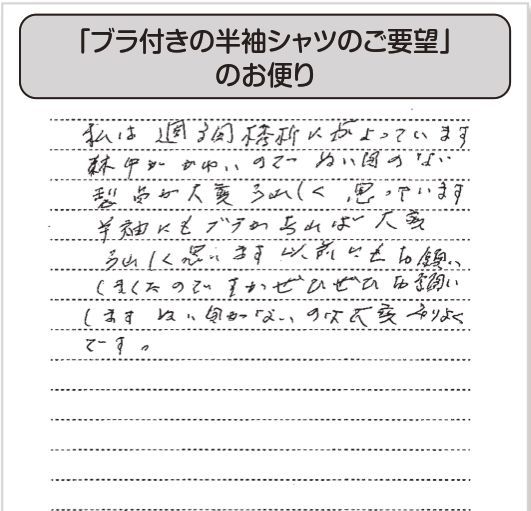 「ブラ付きの半袖シャツのご要望」
のお便り
私は週3回透析にかよっています
背中がかゆいのでぬい目のない
製品が大変うれしく思っています
半袖にもブラがあれば大変
うれしく思います 以前にもお願い
しましたのですがぜひぜひお願い
します ぬい目がないのは大変
です。